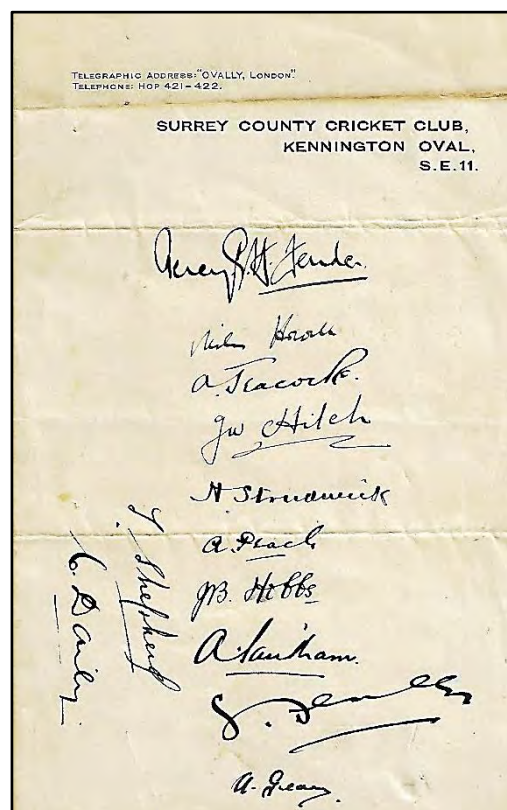 TELEGRAPHIC ADDRESS: "OVALLY, LONDON."
TELEPHONE: HOP 421-422.
SURREY COUNTY CRICKET CLUB,
KENNINGTON OVAL,
S.E.11.
Percy G. H. Fender.
Miles Howell
A. Jeacocke.
JW Hitch
H. Strudwick
A. Peach
JB. Hobbs
A. Sandham.
A. Geary.
T. Shepherd